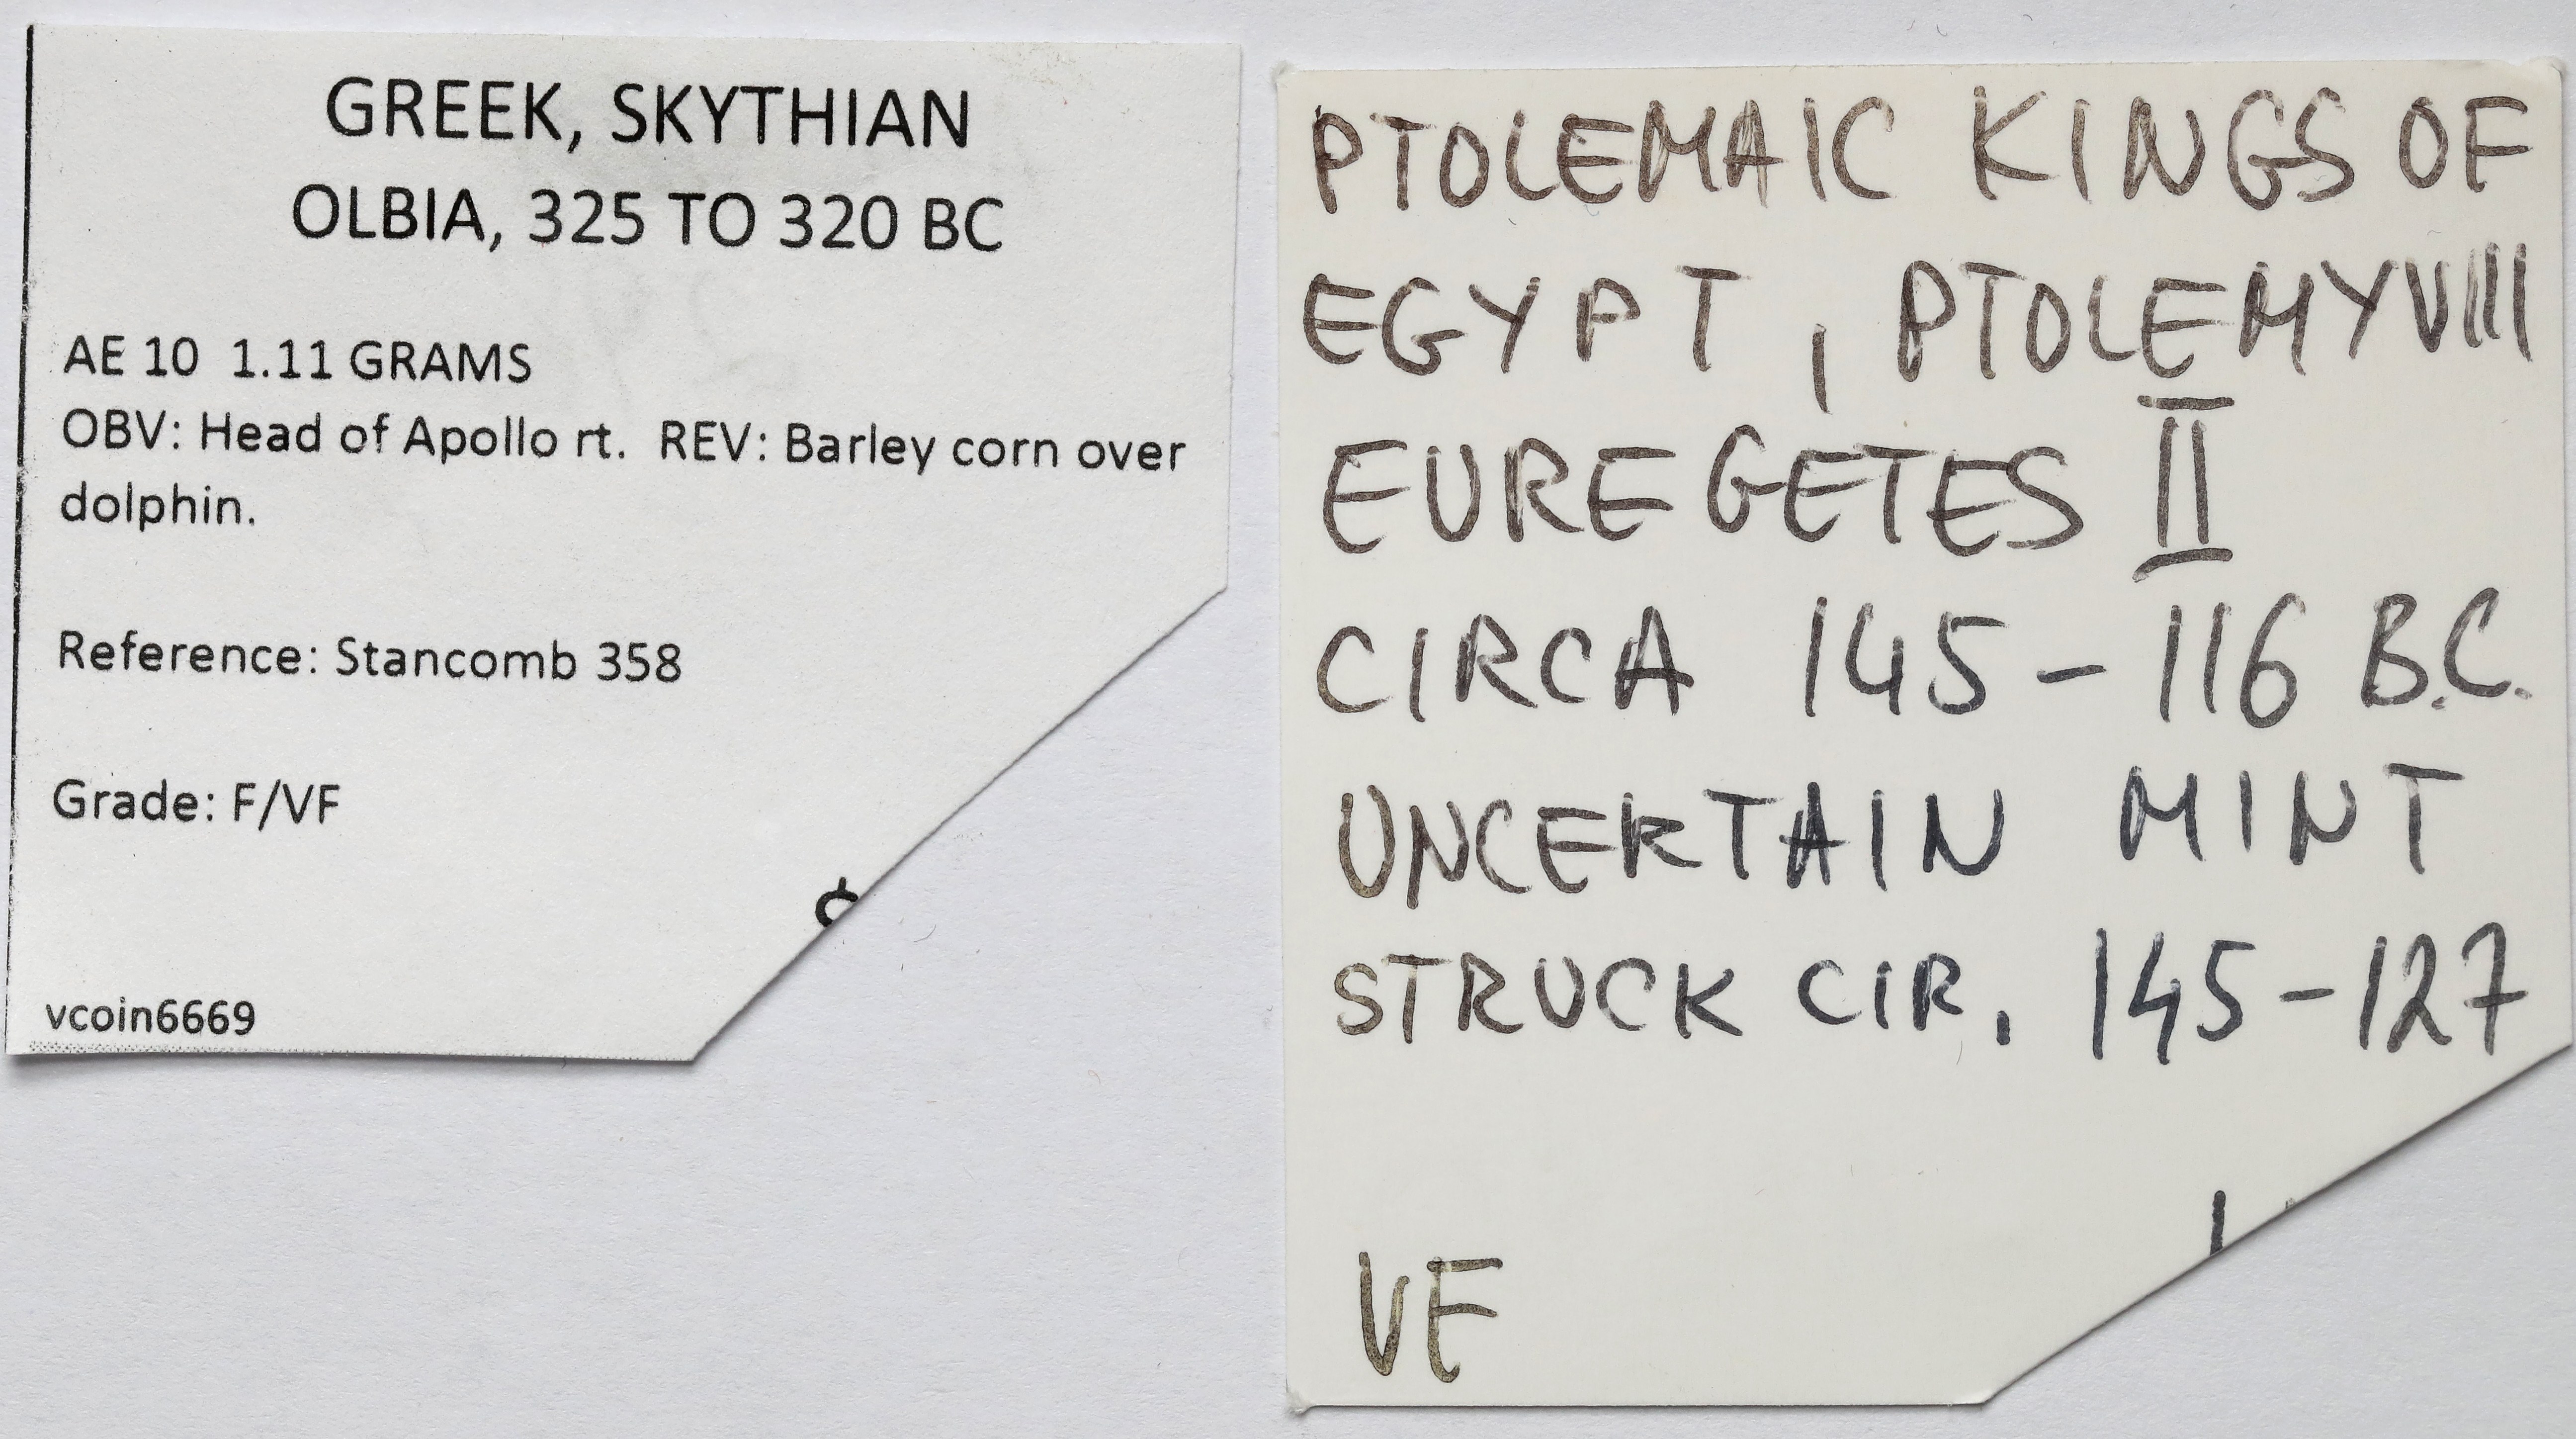 GREEK, SKYTHIAN
OLBIA, 325 TO 320 BC
AE 10 1.11 GRAMS
OBV: Head of Apollo rt. REV: Barley corn over
dolphin.
Reference: Stancomb 358
Grade: F/VF
vcoin6669
PTOLEMAIC KINGS OF
EGYPT, PTOLEMY VIII
EUREGETES II
CIRCA 145-116 B.C.
UNCERTAIN MINT
STRUCK CIR. 145-127
VF